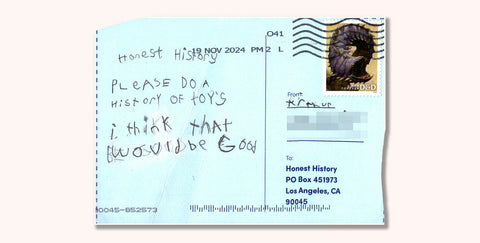 041
19 NOV 2024 PM 2 L
Honest History
PLEASE DO A
HISTORY OF TOY'S
i think that
WOULD be Good
From:
To:
Honest History
PO Box 451973
Los Angeles, CA
90045
90045-852573